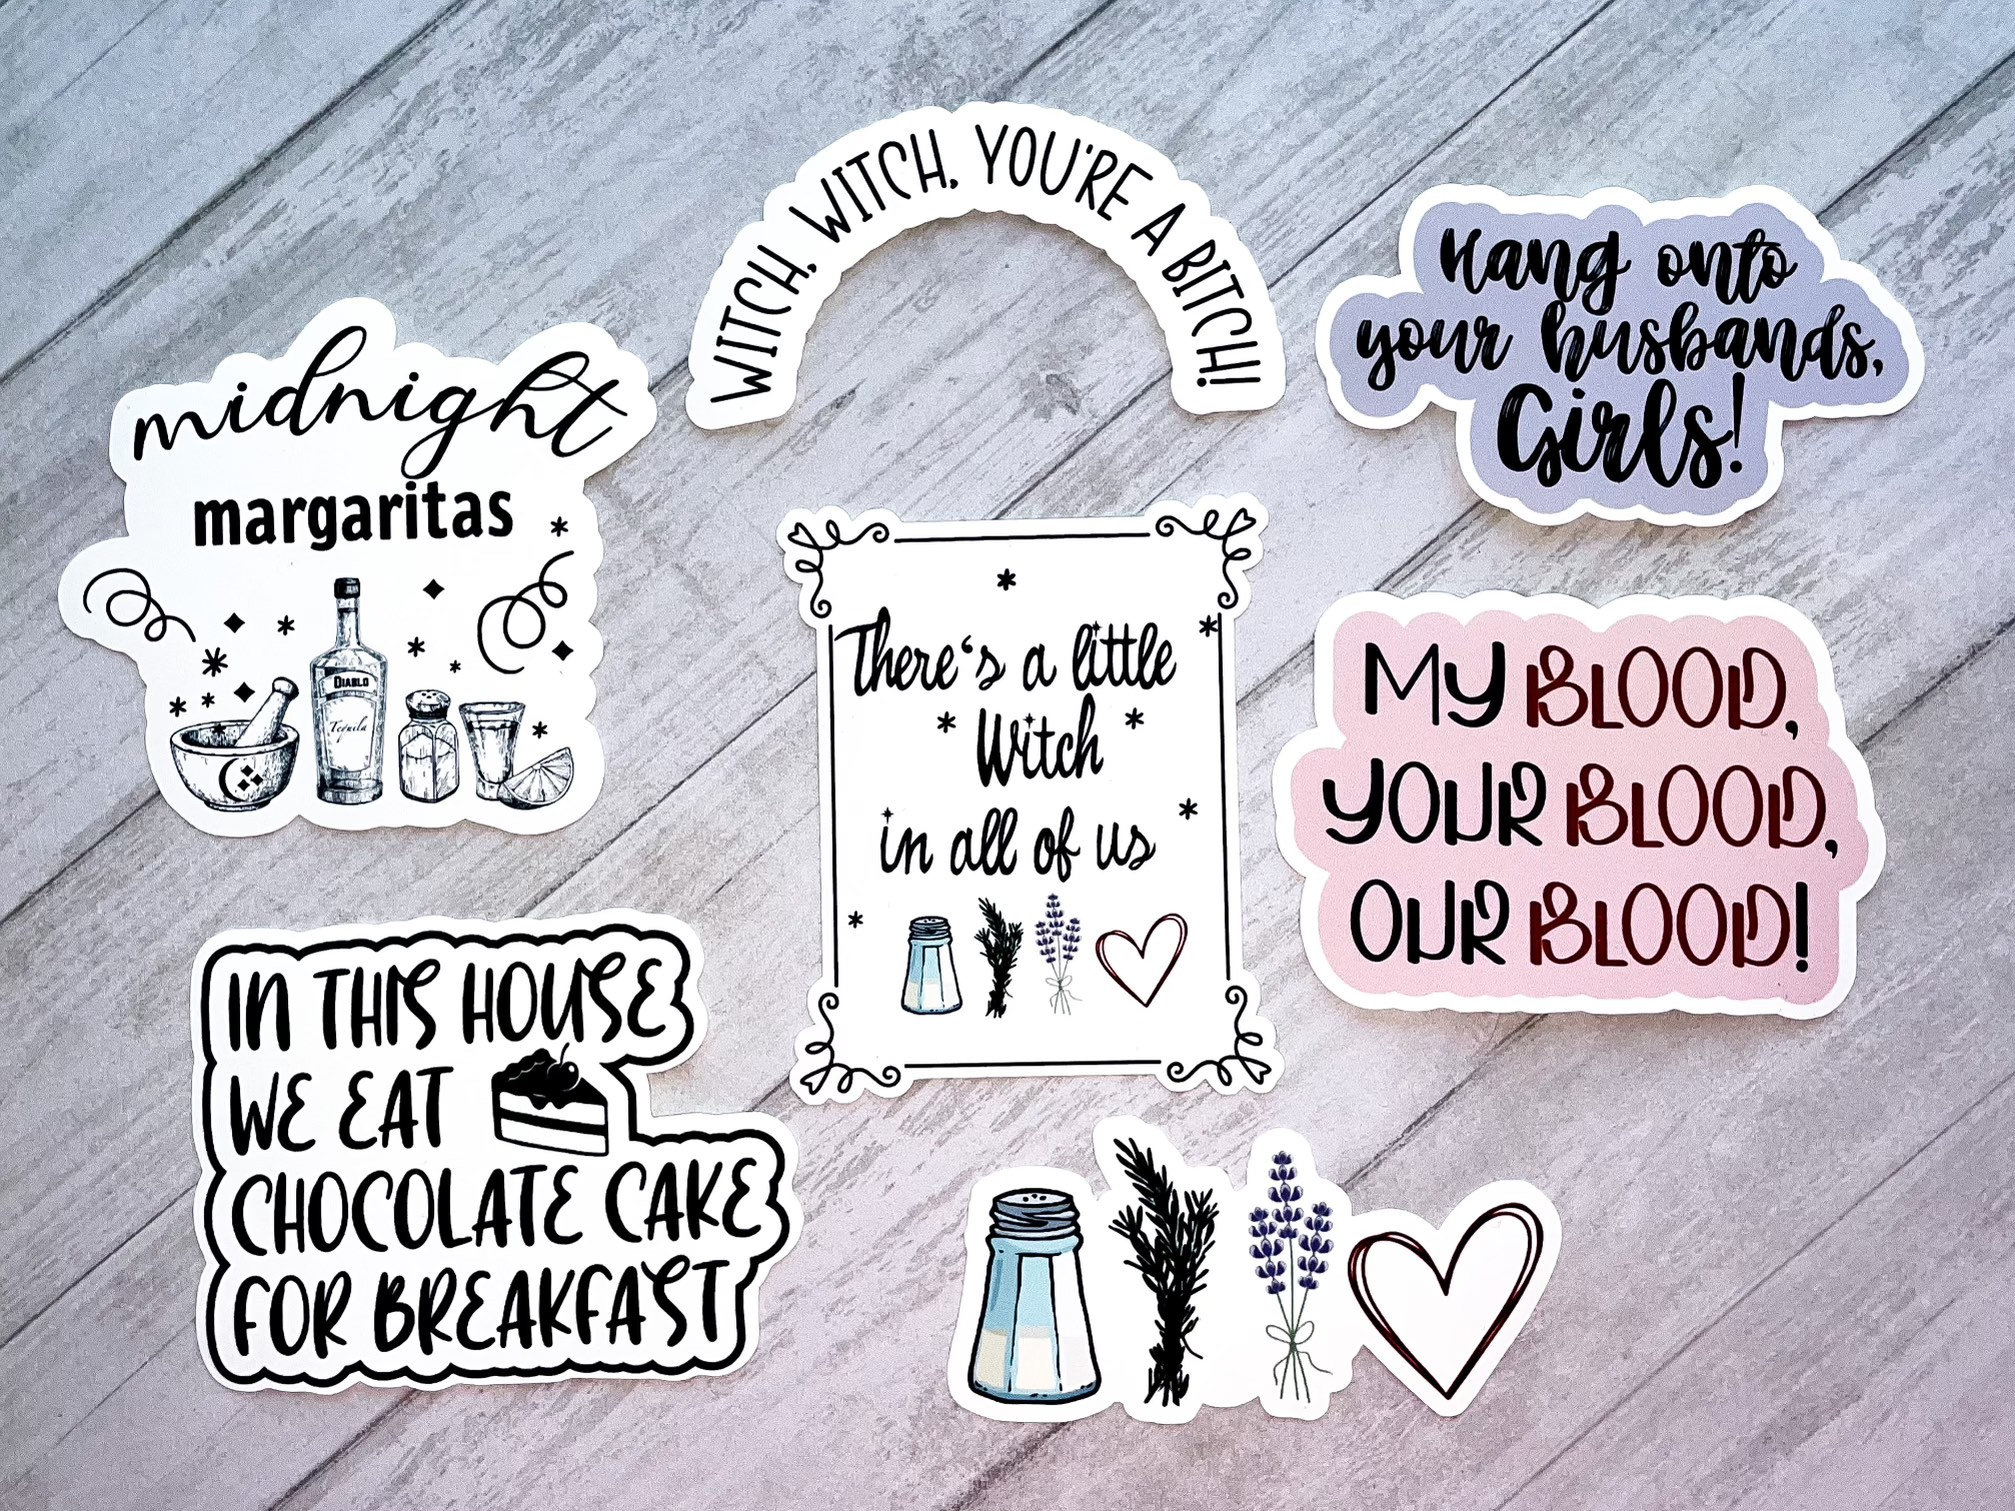 WITCH, WITCH, YOU'RE A BITCH!
Hang onto
your husbands,
Girls!
midnight
margaritas
DIABLO
Tequila
There's a little
Witch
in all of us
MY BLOOD,
YOUR BLOOD,
OUR BLOOD!
IN THIS HOUSE
WE EAT
CHOCOLATE CAKE
FOR BREAKFAST